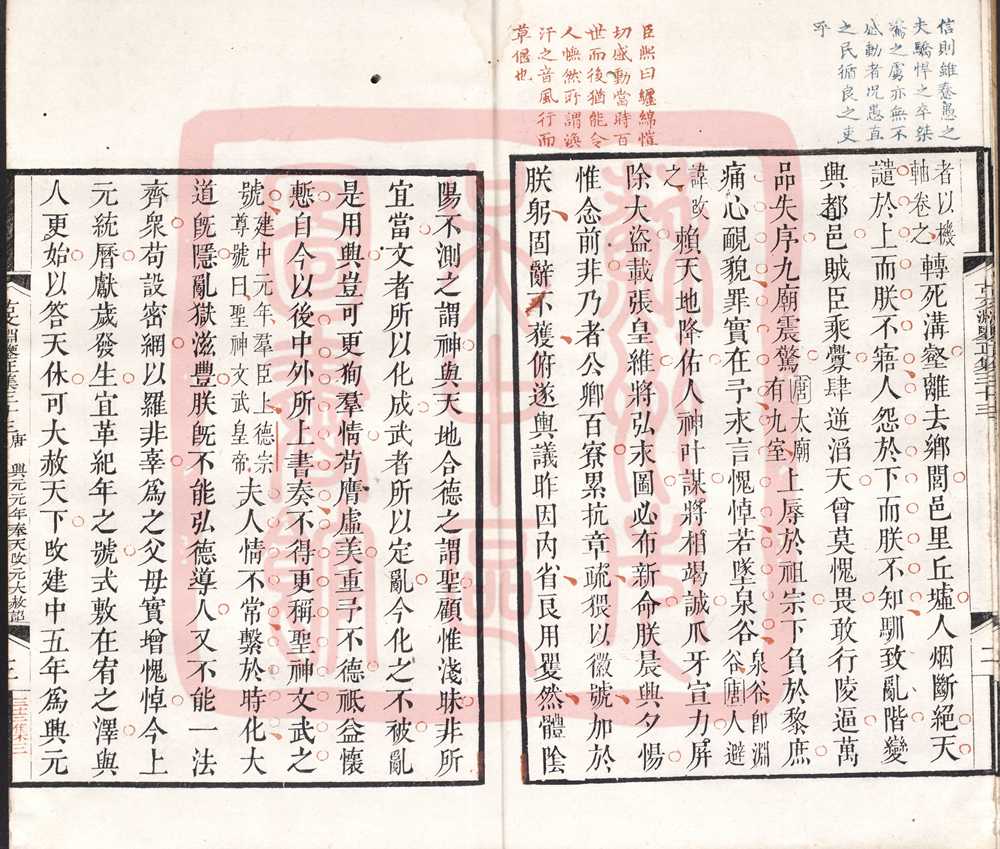 信則雖蠢愚之
夫驕悍之卒桀
驁之虜亦無不
感動者况愚直
之民循良之吏
乎
臣熙曰纏綿愷
切感動當時百
世而後猶能令
人憮然所謂渙
汗之音風行而
草偃也
者以機
軸卷之轉死溝壑離去鄉閭邑里丘墟人烟斷絕天
譴於上而朕不寤人怨於下而朕不知馴致亂階變
興都邑賊臣乘釁肆逆滔天曾莫愧畏敢行陵逼萬
品失序九廟震驚唐太廟有九室上辱於祖宗下負於黎庶
痛心靦貌罪實在予永言愧悼若墜泉谷泉谷即淵谷唐人避
諱改之賴天地降佑人神叶謀將相竭誠爪牙宣力屏
除大盜載張皇維將弘永圖必布新命朕晨興夕惕
惟念前非乃者公卿百寮累抗章疏猥以徽號加於
朕躬固辭不獲俯遂輿議昨因內省良用瞿然體陰
陽不測之謂神與天地合德之謂聖顧惟淺昧非所
宜當文者所以化成武者所以定亂今化之不被亂
是用興豈可更狥羣情苟膺虛美重予不德祗益懷
慙自今以後中外所上書奏不得更稱聖神文武之
號建中元年羣臣上德宗尊號曰聖神文武皇帝夫人情不常繫於時化大
道旣隱亂獄滋豐朕旣不能弘德導人又不能一法
齊衆苟設密網以羅非辜爲之父母實增愧悼今上
元統曆獻歲發生宜革紀年之號式敷在宥之澤與
人更始以答天休可大赦天下改建中五年爲興元
唐 興元元年奉天改元大赦詔